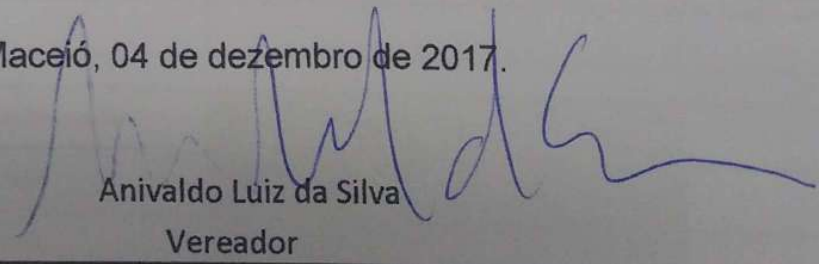 Maceió, 04 de dezembro de 2017.
Anivaldo Luiz da Silva
Vereador